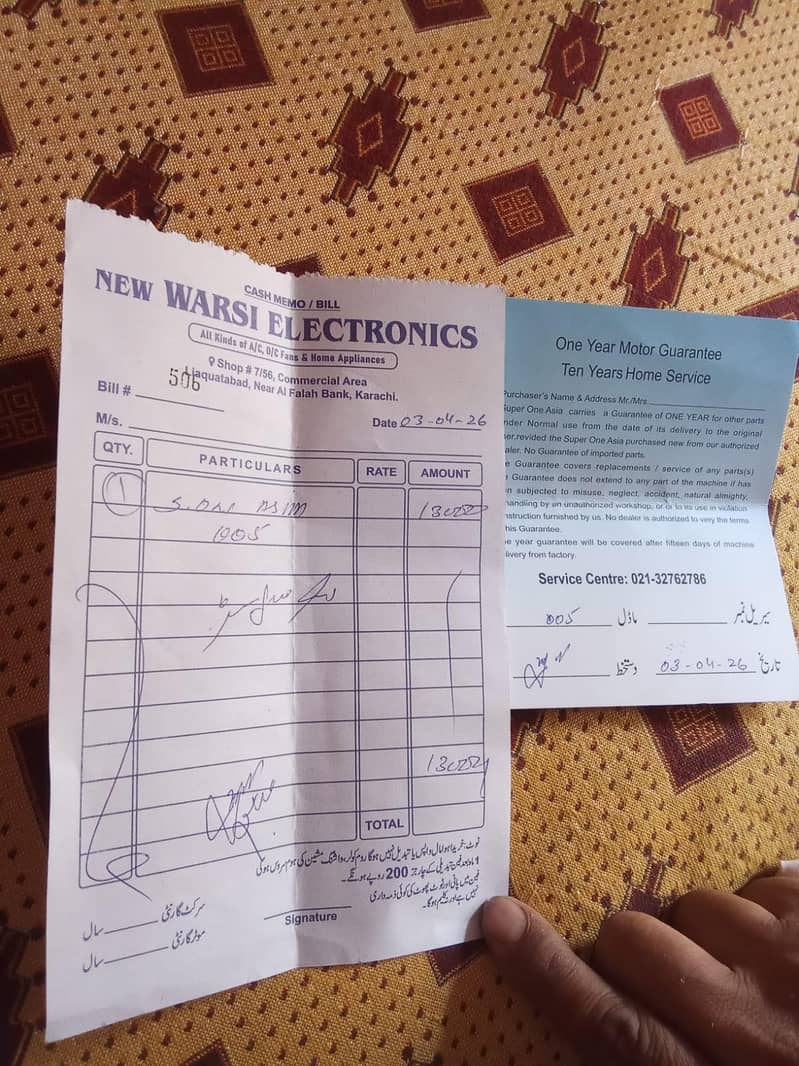 CASH MEMO / BILL
NEW WARSI ELECTRONICS
All Kinds of A/C, D/C Fans & Home Appliances
Shop # 7/56, Commercial Area
Liaquatabad, Near Al Falah Bank, Karachi.
Bill # 506
M/s.
Date 03-04-26
QTY. PARTICULARS RATE AMOUNT
1
TOTAL
نوٹ: خریدا ہوا مال واپس یا تبدیل نہیں ہوگا روم کولر، واشنگ مشین کی ہوم سروس ہوگی
200 روپے ہونگے۔
Signature
سرکٹ گارنٹی سال
موٹر گارنٹی سال
One Year Motor Guarantee
Ten Years Home Service
Purchaser's Name & Address Mr./Mrs
Super One Asia carries a Guarantee of ONE YEAR for other parts
under Normal use from the date of its delivery to the original
the Super One Asia purchased new from our authorized
No Guarantee of imported parts.
Guarantee covers replacements / service of any parts(s)
Guarantee does not extend to any part of the machine if has
subjected to misuse, neglect, accident, natural almighty,
handling by an unauthorized workshop, or or to its use in violation
furnished by us. No dealer is authorized to very the terms
this Guarantee.
year guarantee will be covered after fifteen days of machine
from factory.
Service Centre: 021-32762786
سیریل نمبر ماڈل
تاریخ 03-04-26 دستخط